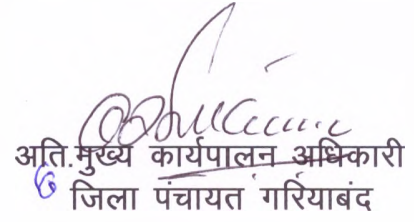 अति.मुख्य कार्यपालन अधिकारी
जिला पंचायत गरियाबंद